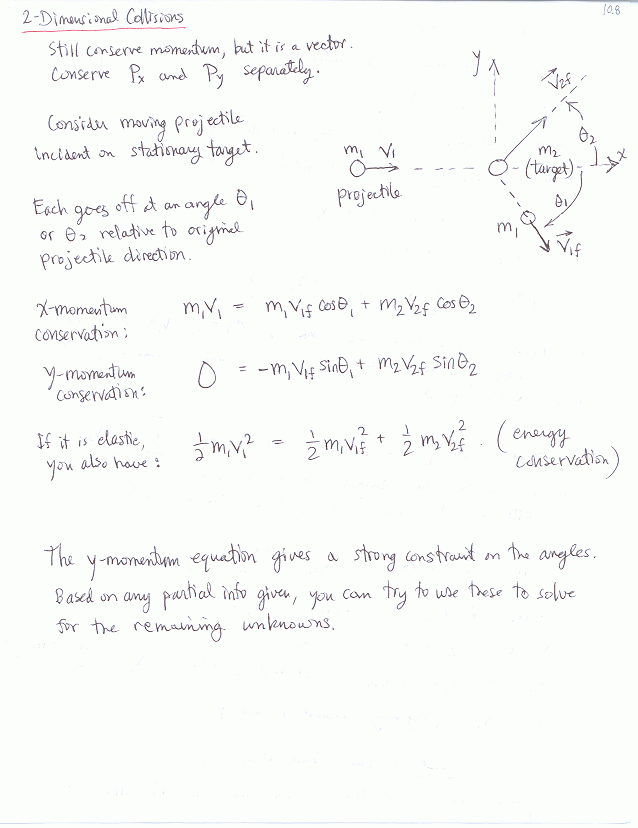 10.8
2-Dimensional Collisions
Still conserve momentum, but it is a vector.
Conserve Px and Py separately.
Consider moving projectile
incident on stationary target.
Each goes off at an angle θ₁
or θ₂ relative to original
projectile direction.
y
V⃗2f
θ₂
x
m₁ V₁
projectile
m₂
(target)
θ₁
m₁
V⃗1f
X-momentum
conservation:
m₁V₁ = m₁V1f cosθ₁ + m₂V2f cosθ₂
y-momentum
conservation:
0 = -m₁V1f sinθ₁ + m₂V2f sinθ₂
If it is elastic,
you also have:
½ m₁V₁² = ½ m₁V1f² + ½ m₂V2f². (energy
conservation)
The y-momentum equation gives a strong constraint on the angles.
Based on any partial info given, you can try to use these to solve
for the remaining unknowns.